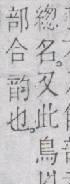 總名。又此鳥以
部合韵也。